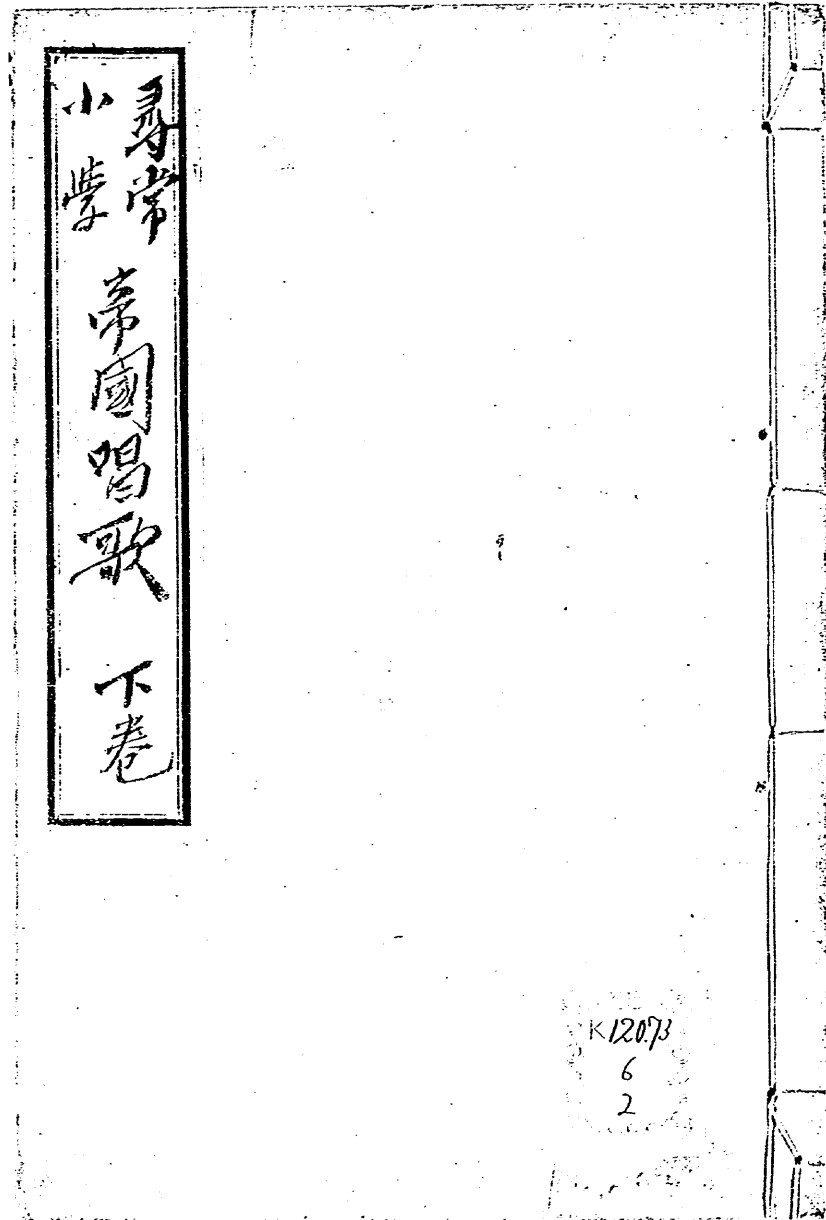 尋常
小學
帝國唱歌 下卷
K120.73
6
2